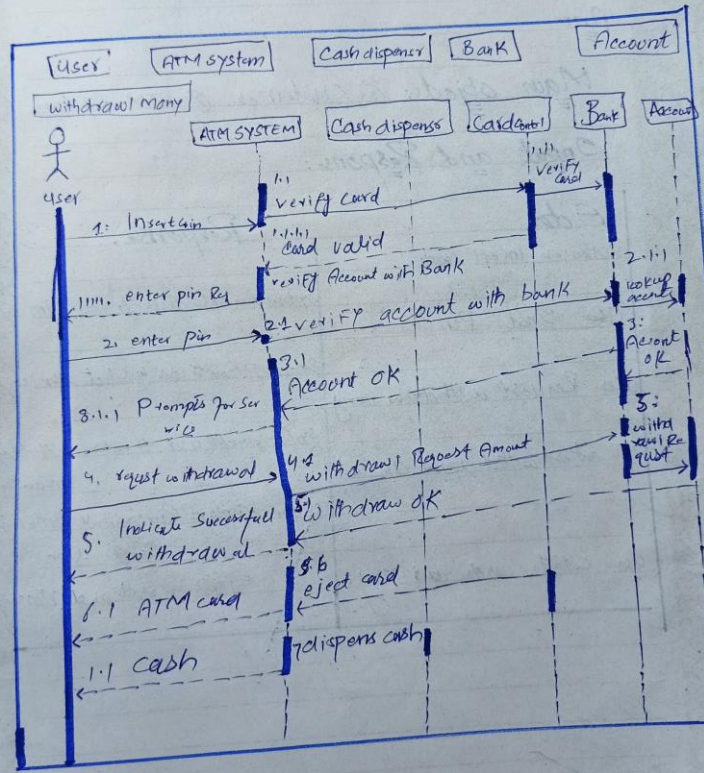 user
ATM system
Cash dispensr
Bank
Account
withdrawl Mony
ATM SYSTEM
Cash dispensr
Card Control
Bank
Account
user
1.1
verify card
1.1.1
verify
card
1: Insert
1.1.1.1
card valid
verify Account with Bank
11111. enter pin Rq
2.1.1
lookup
2. enter pin
2.1 veriFY account with bank
3:
Acront
OK
3.1
Account OK
3.1.1 Prompts for Ser
vice
4. requst withdrawal
4.1
withdrawl Request Amount
5:
withd
rawl Re
qust
5.1
withdraw OK
5. Indicate Successfull
withdrawal
eject card
6.1 ATM card
7 dispens cash
1.1 cash